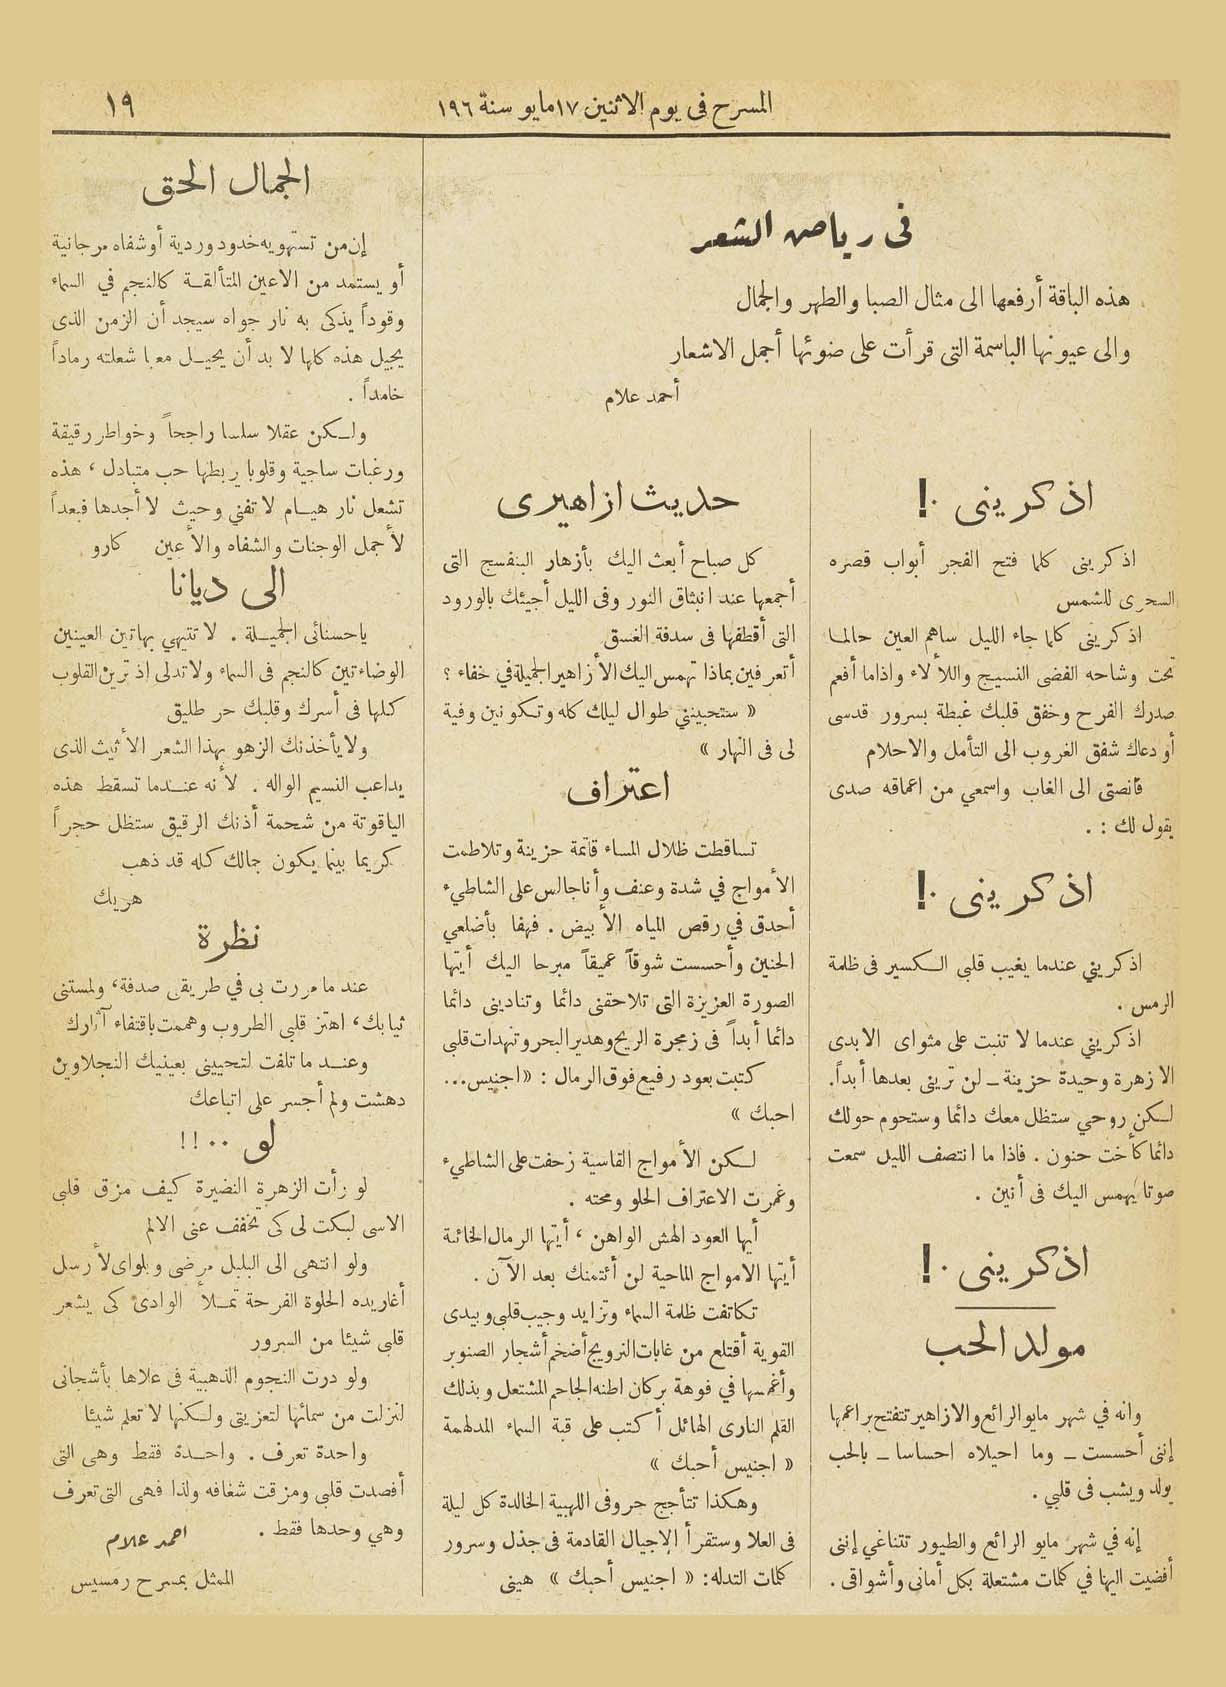 المسرح في يوم الاثنين ١٧ مايو سنة ١٩٦
١٩
فى رياض الشعر
هذه الباقة أرفعها الى مثال الصبا والطهر والجمال
والى عيونها الباسمة التى قرأت على ضوئها أجمل الاشعار
أحمد علام
اذكرينى ٠!
اذكرينى كلما فتح الفجر أبواب قصره
السحرى للشمس
اذكرينى كلما جاء الليل ساهم العين حالما
تحت وشاحه الفضى النسيج واللألاء واذاما أفعم
صدرك الفرح وخفق قلبك غبطة بسرور قدسى
أو دعاك شفق الغروب الى التأمل والاحلام
فأنصتى الى الغاب واسمعي من اعماقه صدى
يقول لك : .
اذكرينى ٠!
اذكريني عندما يغيب قلبي الكسير فى ظلمة
الرمس .
اذكريني عندما لا تنبت على مثواى الابدى
الا زهرة وحيدة حزينة ــ لن ترينى بعدها أبداً.
لكن روحي ستظل معك دائما وستحوم حولك
دائما كأخت حنون . فاذا ما انتصف الليل سمعت
صوتا يهمس اليك فى أنين .
اذكرينى ٠!
مولد الحب
وانه في شهر مايو الرائع والازاهير تتفتح براعمها
إننى أحسست ــ وما احيلاه احساسا ــ بالحب
يولد ويشب فى قلبي .
إنه في شهر مايو الرائع والطيور تتناغي إننى
أفضيت اليها في كلمات مشتعلة بكل أمانى وأشواقى .
حديث ازاهيرى
كل صباح أبعث اليك بأزهار البنفسج التى
أجمعها عند انبثاق النور وفى الليل أجيئك بالورود
التى أقطفها فى سدفة الغسق
أتعرفين بماذا تهمس اليك الأزاهير الجميلة في خفاء ؟
« ستحبينني طوال ليلك كله وتكونين وفية
لى فى النهار »
اعتراف
تساقطت ظلال المساء قاتمة حزينة وتلاطمت
الأمواج في شدة وعنف وأنا جالس على الشاطىء
أحدق في رقص المياه الأبيض . فهفا بأضلعي
الحنين وأحسست شوقاً عميقاً مبرحا اليك أيتها
الصورة العزيزة التى تلاحقنى دائما وتنادينى دائما
دائما أبداً فى زمجرة الريح وهدير البحر وتنهدات قلبى
كتبت بعود رفيع فوق الرمال : « اجنيس...
احبك »
لكن الأمواج القاسية زحفت على الشاطىء
وغمرت الاعتراف الحلو ومحته .
أيها العود الهش الواهن ، أيتها الرمال الخائنة
أيتها الامواج الماحية لن أئتمنك بعد الآن .
تكاثفت ظلمة السماء وتزايد وجيب قلبى وبيدى
القوية أقتلع من غابات النرويج أضخم أشجار الصنوبر
وأغمسها في فوهة بركان اطنه الجاحم المشتعل وبذلك
القلم النارى الهائل أكتب على قبة السماء المدلهمة
« اجنيس أحبك »
وهكذا تتأجج حروفى اللهبية الخالدة كل ليلة
فى العلا وستقرأ الاجيال القادمة فى جذل وسرور
كلمات التدله: « اجنيس أحبك » هينى
الجمال الحق
إن من تستهويه خدود وردية أو شفاه مرجانية
أو يستمد من الاعين المتألقة كالنجم في السماء
وقوداً يذكى به نار جواه سيجد أن الزمن الذى
يحيل هذه كلها لا بد أن يحيل معها شعلته رماداً
خامداً .
ولكن عقلا سلسا راجحاً وخواطر رقيقة
ورغبات ساجية وقلوبا ربطها حب متبادل ، هذه
تشعل نار هيام لا تفني وحيث لا أجدها فبعداً
لأجمل الوجنات والشفاه والأعين كارو
الى ديانا
ياحسنائى الجميلة . لا تتيهي بهاتين العينين
الوضاءتين كالنجم فى السماء ولا تدلى اذ ترين القلوب
كلها فى أسرك وقلبك حر طليق
ولا يأخذنك الزهو بهذا الشعر الأثيث الذى
يداعب النسيم الواله . لأنه عندما تسقط هذه
الياقوتة من شحمة أذنك الرقيق ستظل حجراً
كريما بينما يكون جمالك كله قد ذهب
هريك
نظرة
عند ما مررت بى في طريقى صدفة، ولمستنى
ثيابك، اهتز قلبى الطروب وهممت باقتفاء آثارك
وعند ما تلفت لتحيينى بعينيك النجلاوين
دهشت ولم أجسر على اتباعك
لو ٠٠ !!
لو رأت الزهرة النضيرة كيف مزق قلبى
الاسى لبكت لى كى تخفف عنى الالم
ولو انتهى الى البلبل مرضى وبلواى لأرسل
أغاريده الحلوة الفرحة تملأ الوادى كى يشعر
قلبى شيئا من السرور
ولو درت النجوم الذهبية فى علاها بأشجانى
لنزلت من سمائها لتعزيتى ولكنها لا تعلم شيئا
واحدة تعرف . واحدة فقط وهى التى
أقصدت قلبى ومزقت شغافه ولذا فهى التى تعرف
وهي وحدها فقط .
احمد علام
الممثل بمسرح رمسيس